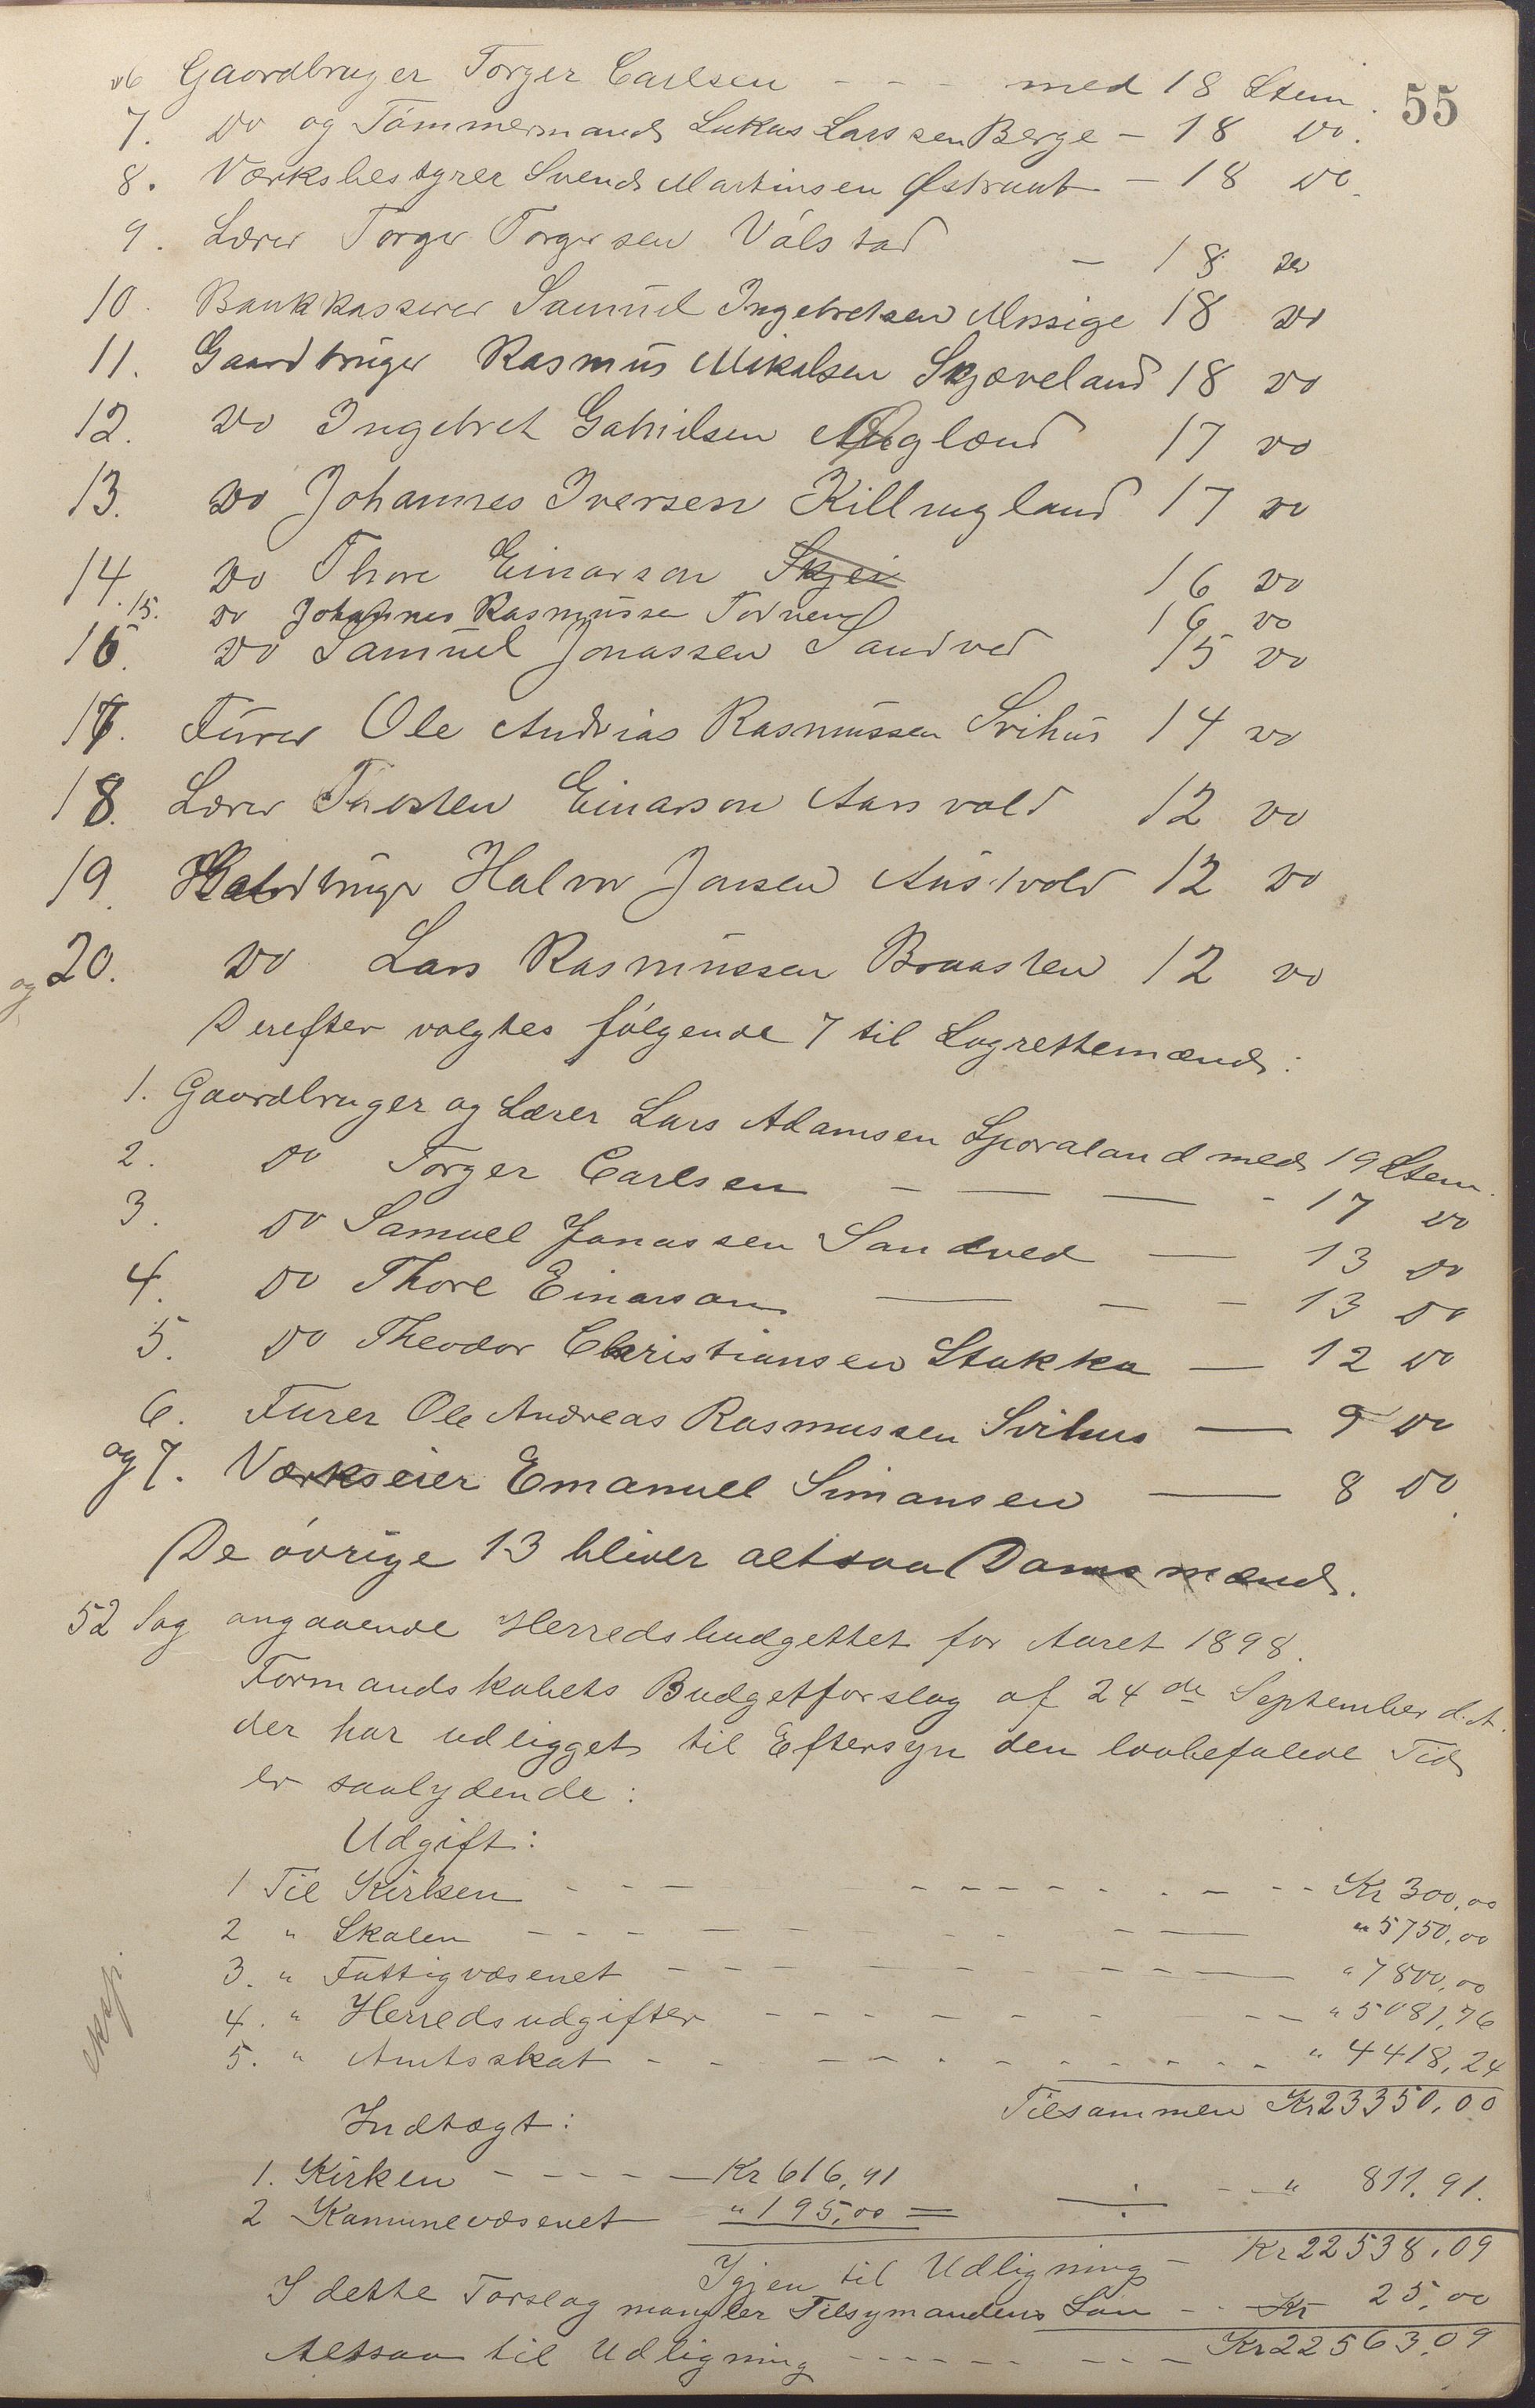 55
6 Gaardbruger Torger Carlsen - - - med 18 Stem.
7. Do og Tømmermand Lukas Larssen Berge - 18 Do.
8. Værksbestyrer Svend Martinsen Østraat - 18 Do.
9. Lærer Torger Torgersen Válstad - 18 Do
10. Bankkasserer Samuel Ingebretsen Mosige 18 Do
11. Gaardbruger Rasmus Mikalsen Skjæveland 18 Do
12. Do Ingebret Gabrielsen 17 Do
13. Do Johannes Iversen Killingland 17 Do
14. Do Thore Einarson Skjei 16 Do
15. Do Johannes Rasmussen 16 Do
16. Do Samuel Jonassen Sandved 15 Do
17. Furer Ole Andrias Rasmussen Svihus 14 Do
18. Lærer Thorsten Einarson Aarsvold 12 Do
19. Gaardbruger Halvor Jonsen Austvold 12 Do
og 20. Do Lars Rasmussen Braasten 12 Do
Derefter valgtes følgende 7 til Lagrettemænd:
1. Gaardbruger og Lærer Lars Adamsen Sporaland med 19 Stem.
2. Do Torger Carlsen - — — - 17 Do
3. Do Samuel Jonassen Sandved — 13 Do
4. Do Thore Einarson — - - 13 Do
5. Do Theodor Christiansen Stokka — 12 Do
6. Furer Ole Andreas Rasmussen Svihus — 9 Do
og 7. Værkseier Emanuel Simonsen — 8 Do.
De øvrige 13 bliver altsaa Domsmænd.
52 Sag angaaende Herredsbudgettet for Aaret 1898.
Formandskabets Budgetforslag af 24de September d.A.
der har udligget til Eftersyn den lovbefalede Tid
er saalydende:
Udgift:
1 Til Kirken - - - - - - - - - - - Kr 300,00
2 " Skolen - - - — - - - - — " 5750,00
3. " Fattigvæsenet - - - - - - - - — " 7800,00
4. " Herredsudgifter - - - - - - - - " 5081,76
5. " Amtsskat - - - - - - - - - - - " 4418,24
Tilsammen Kr 23350,00
Indtægt:
1. Kirken - - - - — Kr 616,91
2 Kommunevæsenet " 195,00 = ÷ - " 811,91.
Igjen til Udligning - Kr 22538,09
I dette Forslag mangler Tilsynsmandens Løn - - Kr 25,00
Altsaa til Udligning - - - - - - - - - Kr 22563,09
eksp.